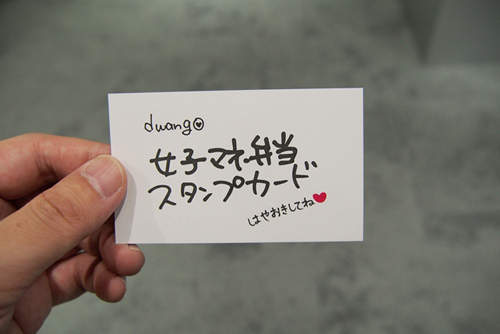 dwango
女子マネ弁当
スタンプカード
はやおきしてね♥